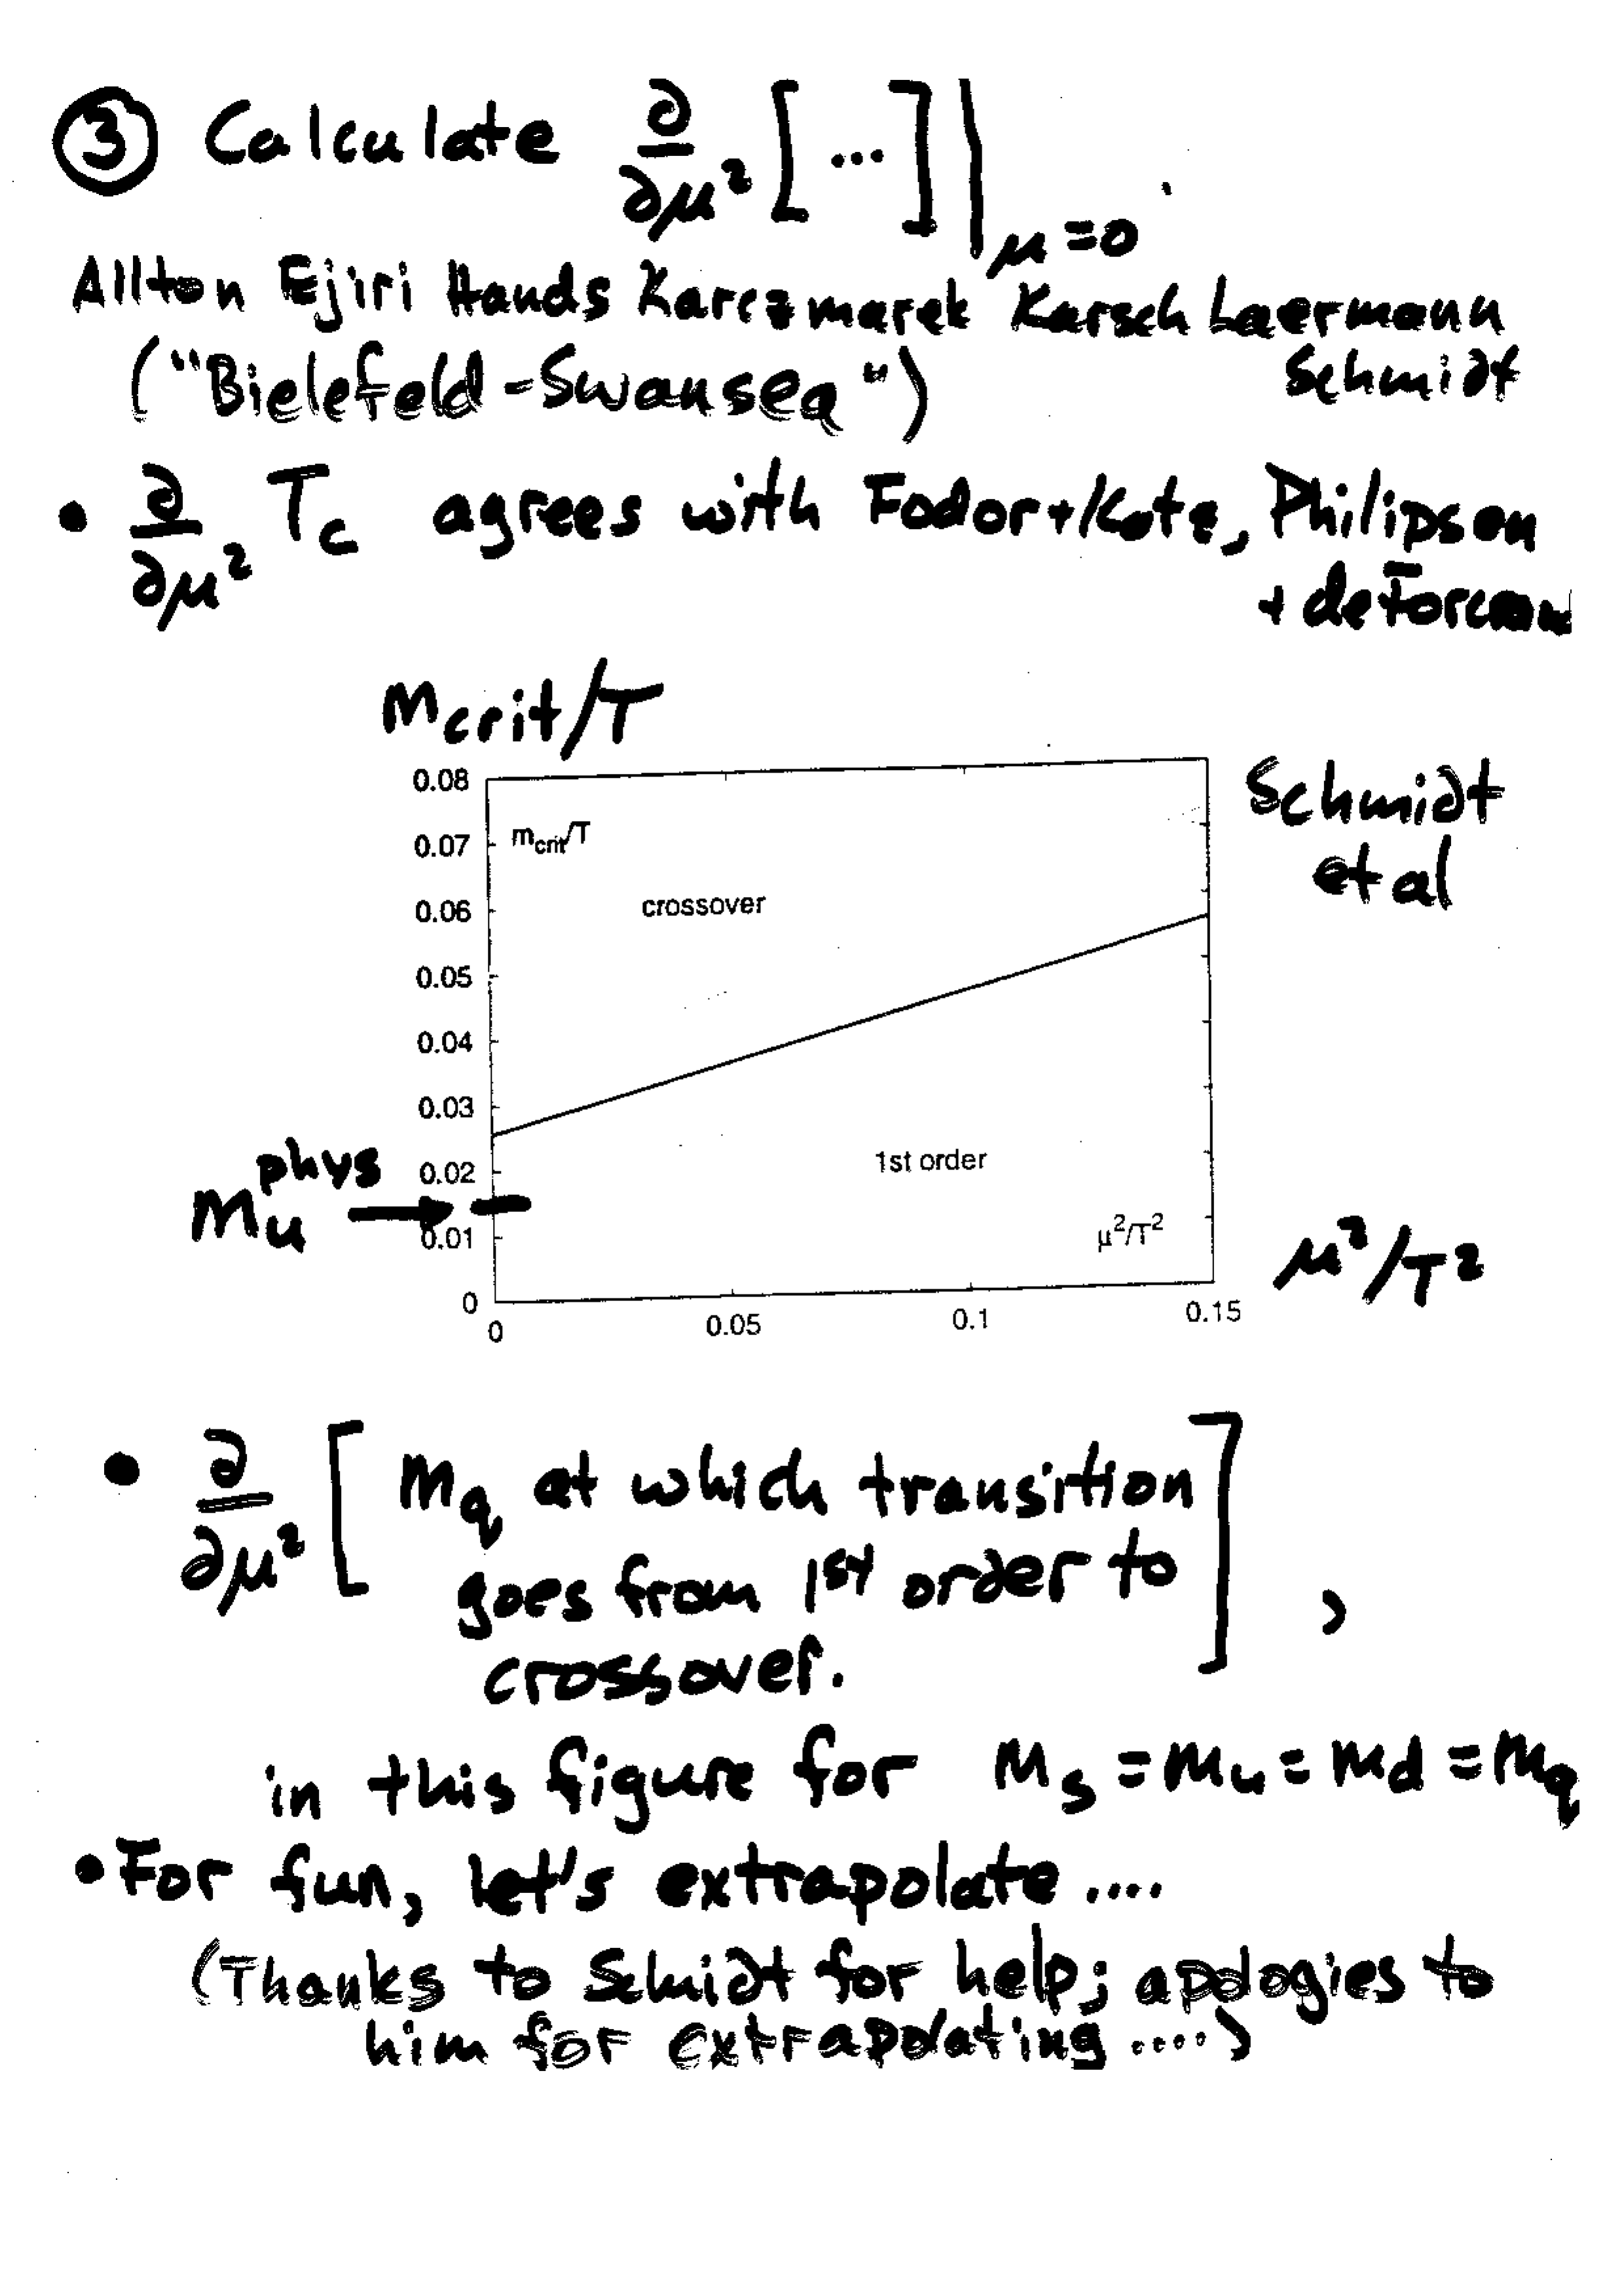 ③ Calculate ∂/∂μ² [...] |μ=0
Allton Ejiri Hands Karczmarek Karsch Laermann
("Bielefeld-Swansea") Schmidt
• ∂/∂μ² Tc agrees with Fodor+Katz, Philipsen
+ deForcran
mcrit/T
0.08
Schmidt
et al
0.07
mcrit/T
0.06
crossover
0.05
0.04
0.03
0.02
1st order
mu^phys →
0.01
μ²/T²
μ²/T²
0
0 0.05 0.1 0.15
• ∂/∂μ² [ mq at which transition
goes from 1st order to ] ,
crossover.
in this figure for ms = mu = md = mq
• For fun, let's extrapolate ....
(Thanks to Schmidt for help; apologies to
him for extrapolating ....)